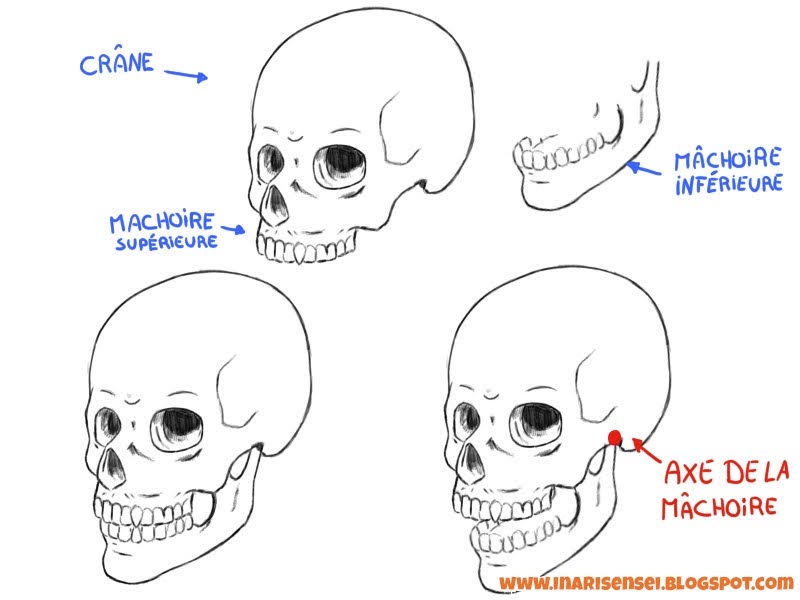 CRÂNE
MÂCHOIRE
INFÉRIEURE
MACHOIRE
SUPÉRIEURE
AXE DE LA
MÂCHOIRE
www.inarisensei.blogspot.com